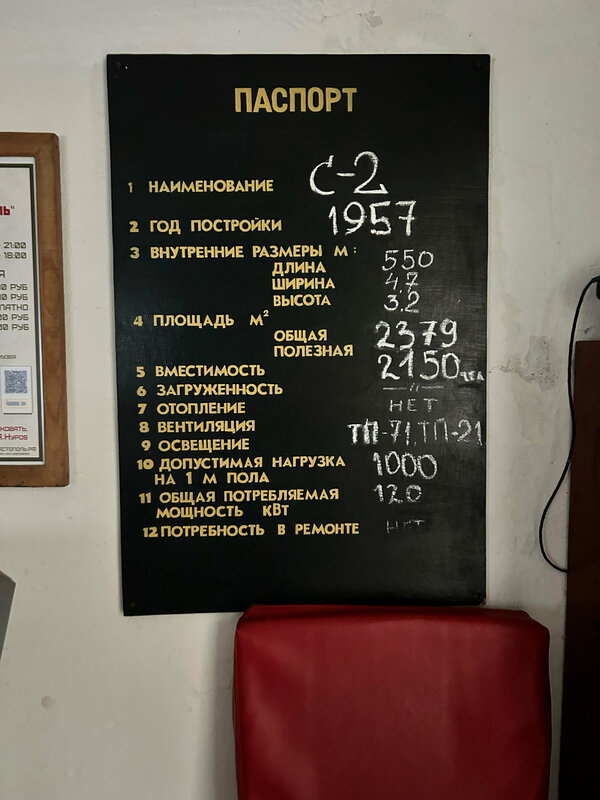 ПАСПОРТ
1 НАИМЕНОВАНИЕ С-2
2 ГОД ПОСТРОЙКИ 1957
3 ВНУТРЕННИЕ РАЗМЕРЫ М:
ДЛИНА 550
ШИРИНА 4,7
ВЫСОТА 3,2
4 ПЛОЩАДЬ М²
ОБЩАЯ 2379
ПОЛЕЗНАЯ 2150
5 ВМЕСТИМОСТЬ
6 ЗАГРУЖЕННОСТЬ —"—
7 ОТОПЛЕНИЕ НЕТ
8 ВЕНТИЛЯЦИЯ
9 ОСВЕЩЕНИЕ ТП-71, ТП-21
10 ДОПУСТИМАЯ НАГРУЗКА
НА 1 М ПОЛА 1000
11 ОБЩАЯ ПОТРЕБЛЯЕМАЯ
МОЩНОСТЬ КВТ 120
12 ПОТРЕБНОСТЬ В РЕМОНТЕ НЕТ
21:00
18:00
РУБ
РУБ
РУБ
РУБ